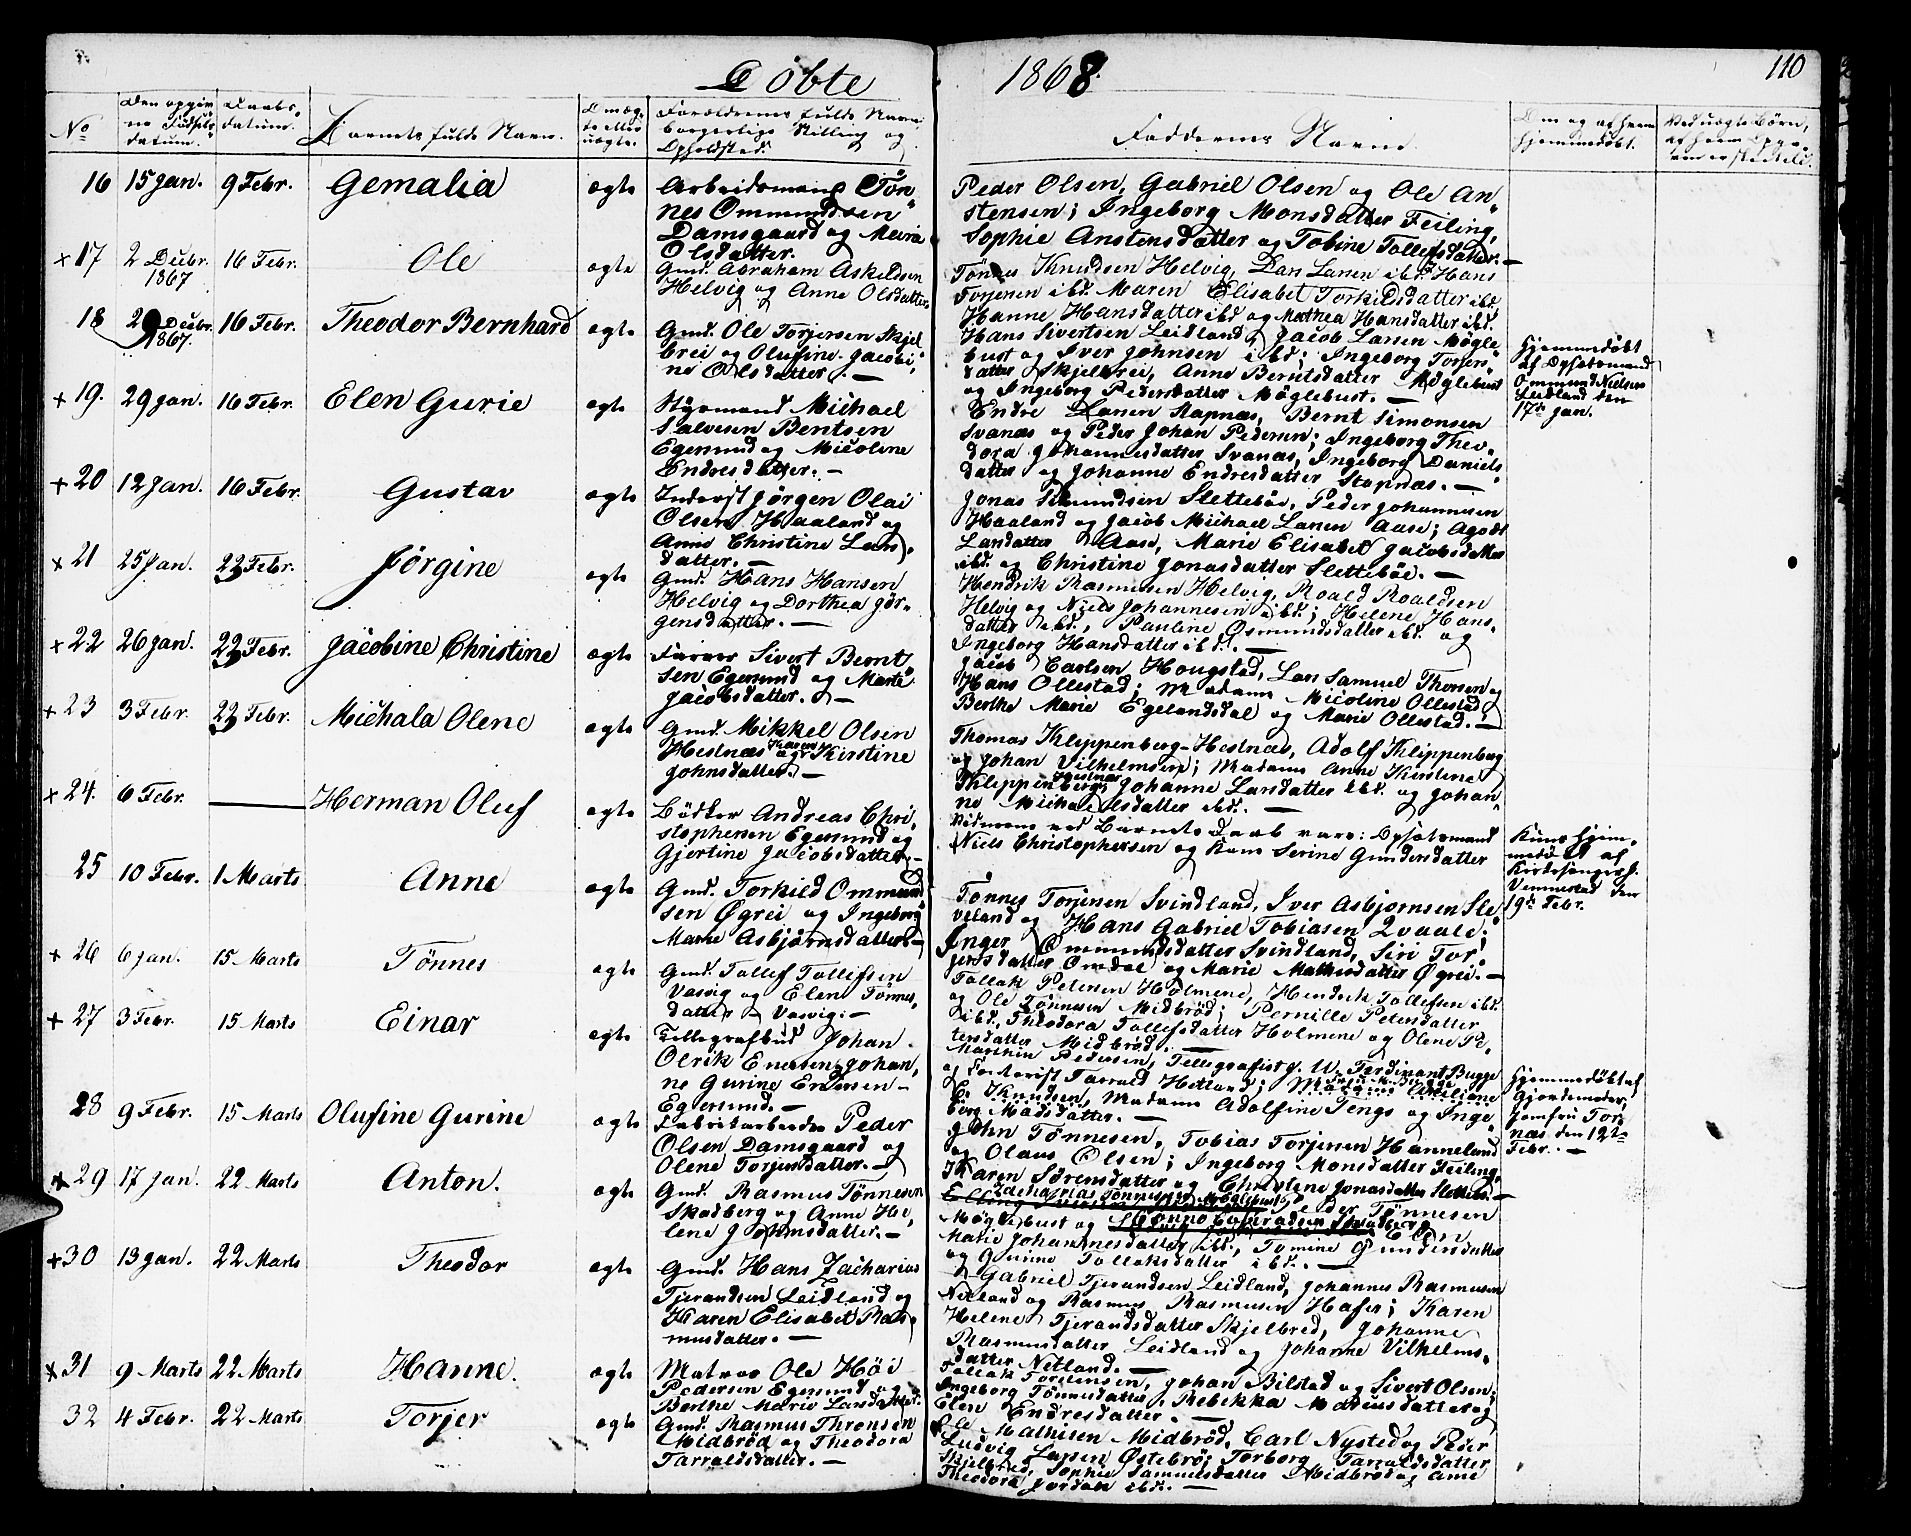 Døbte 1868. 110
No
Den opgiv
ne Fødsels
datum.
Daabs-
datum.
Barnets fulde Navn.
Om æg-
te eller
uægte.
Forældrenes fulde Navn
borgerlige Stilling og
Opholdsted.
Faddernes Navne.
Om og af hvem
hjemmedøbt.
Ved uægte Børn,
af hvem Opga-
ven er skeet &c.
16 15 Jan. 9 Febr. Gemalia ægte
Arbeidsmand Tøn-
nes Ommundsen
Damsgaard og Maria
Olsdatter.
Peder Olsen, Gabriel Olsen og Ole An-
stensen; Ingeborg Monsdatter Feiling,
Sophie Anstensdatter og Tobine Tollefsdatter. —
+ 17 2 Decbr. 1867 16 Febr. Ole ægte
Gmd. Abraham Askeldsen
Helvig og Anne Olsdatter
Tønnes Knudsen Helvig, Lars Larsen ibd. Hans
Torjersen ibd. Maren Elisabet Torkildsdatter ibd.
Hanne Hansdatter ibd og Mathea Hansdatter ibd.
18 29 Decbr. 1867. 16 Febr. Theodor Bernhard ægte
Gmd. Ole Torjersen Skjel
brei og Olufine Jacobi-
ne Olsdatter. —
Hans Sivertsen Leidland, Jacob Larsen Møgle
bust og Iver Johnsen ibd; Ingeborg Torjers-
datter Skjelbrei, Anne Berntsdatter Møglebust
og Ingeborg Pedersdatter Møglebust. —
Hjemmedøbt
af Opsætsmand
Ommund Nielsen
Leidland den
17de Jan.
+ 19. 29 Jan. 16 Febr. Elen Gurie ægte
Styrmand Michael
Salvesen Bentsen
Egersund og Micoline
Endresdatter. —
Endre Larsen Stapnæs, Bernt Simonsen
Svanæs og Peder Johan Pedersen; Ingeborg Theo-
dora Johannesdatter Svanæs, Ingeborg Daniels-
datter og Johanne Endresdatter Stapnæs. —
+ 20 12 Jan. 16 Febr. Gustav ægte
Inderst Jørgen Olai
Olsen Haaland og
Anne Christine Lars-
datter. —
Jonas Simundsen Slettebøe, Peder Johannesen
Haaland og Jacob Michael Larsen Aase; Agate
Larsdatter Aase, Marie Elisabet Jacobsdatter
ibd. og Christine Jonasdatter Slettebøe. —
+ 21 25 Jan. 22 Febr. Jørgine ægte
Gmd. Hans Hansen
Helvig og Dorthea Jør-
gensdatter. —
Hendrik Rasmussen Helvig, Roald Roaldsen
Helvig og Niels Johannesen ibd.; Helene Hans-
datter ibd., Pauline Osmundsdatter ibd. og
Ingeborg Hansdatter ibd. —
+ 22 26 Jan. 22 Febr. Jacobine Christine ægte
Farver Sivert Bernt-
sen Egersund og Marte
Jacobsdatter. —
Jacob Carlsen Hougstad, Lars Samuel Thorsen og
Hans Ollestad; Madame Micoline Ollestad,
Berthe Marie Egelandsdal og Marie Ollestad. —
+ 23 3 Febr. 22 Febr. Michala Olene ægte
Gmd. Mikkel Olsen
Hestnæs og Karen Kirstine
Johnsdatter. —
Thomas Kleppenberg-Hestnæs, Adolf Kleppenberg
og Johan Vilhelmsen; Madame Anne Kirstine
Kleppenberg, Hestnæs Johanne Larsdatter ibd. og Johan-
ne Michaelsdatter ibd. —
+ 24. 6 Febr. — Herman Oluf ægte
Bødker Andreas Chri-
stophersen Egersund og
Gjertine Jacobsdatter. —
Vidnerne ved Barnets Daab vare: Opsætsmand
Niels Christophersen og Kone Serine Gundersdatter
Kuns hjem-
medøbt af
Kirkesanger J.
Vemmestad den
19de Febr.
25 10 Febr. 1 Marts Anne ægte
Gmd. Torkild Ommund
sen Øgrei og Ingeborg
Marie Asbjørnsdatter. —
Tønnes Torjersen Svindland, Iver Asbjørnsen Sle-
veland og Hans Gabriel Tobiasen Qvaale;
Inger Ommundsdatter Svindland, Siri Tor-
jersdatter Omdal og Marie Mathisdatter Øgrei. —
+ 26 6 Jan. 15 Marts Tønnes ægte
Gmd. Tollef Tollefsen
Vasvig og Elen Tønnes-
datter Vasvig. —
Tollak Petersen Holmene, Hendrik Tollefsen ibd.
og Ole Tønnesen Midbrød; Pernille Petersdatter
ibd., Theodora Tollefsdatter Holmene og Olene Pe-
tersdatter Midbrød. —
+ 27 3 Febr. 15 Marts Einar ægte
Tellegrafbud Johan
Olrik Enersen og Johan-
ne Gurine Endresen —
Egersund. —
Marthin Pedersen, Tellegrafist J. W. Ferdinant Bugge
og Forkarist Tarrald Hetland;
E. Knudsen, Madame Adolfine Tengs og Inge-
borg Madsdatter. —
28 9 Febr. 15 Marts Olufine Gurine ægte
Fabrikarbeider Peder
Olsen Damsgaard og
Olene Torjersdatter. —
John Tønnesen, Tobias Torjersen Hanneland
og Olaus Olsen; Ingeborg Monsdatter Feiling,
Karen Sørensdatter og Christine Jonasdatter Slettebø. —
Hjemmedøbt af
Gjordemoder,
Jomfru Tor-
næs den 12te
Febr. —
+ 29 17 Jan. 22 Marts Anton. ægte
Gmd. Rasmus Tønnesen
Skadberg og Anne He-
lene Johnsdatter. —
Zacharias Tønnesen Møglebust, Peder Tønnesen
Møglebust og Elen
Marie Johannesdatter ibd., Tomine Gundersdatter
og Gurine Tollaksdatter ibd. —
+ 30 13 Jan. 22 Marts Theodor ægte
Gmd. Hans Zacharias
Tjerandsen Leidland og
Karen Elisabet Ras-
musdatter. —
Gabriel Tjerandsen Leidland, Johannes Rasmussen
Netland og Rasmus Rasmussen Hafsø; Karen
Helene Tjerandsdatter Skjelbred, Johanne
Rasmusdatter Leidland og Johanne Vilhelms-
datter Netland. —
+ 31 9 Marts 22 Marts Hanne. ægte
Matros Ole Høi
Pedersen Egersund og
Berthe Marie Larsdatter.
Tollak Torkelsen, Johan Bilstad og Sivert Olsen;
Ingeborg Tønnesdatter, Rebekka Mathiasdatter og
Elen Endresdatter. —
32 4 Febr. 22 Marts Torjer ægte
Gmd. Rasmus Thronsen
Midbrød og Theodora
Tarraldsdatter. —
Ole Mathisen Midbrød, Carl Nysted og Peder
Ludvig Larsen Østebrø; Torborg Tarraldsdatter
Skjelbred, Sophie Samuelsdatter Midbrød og Ane
Theodora Jordan ibd. —